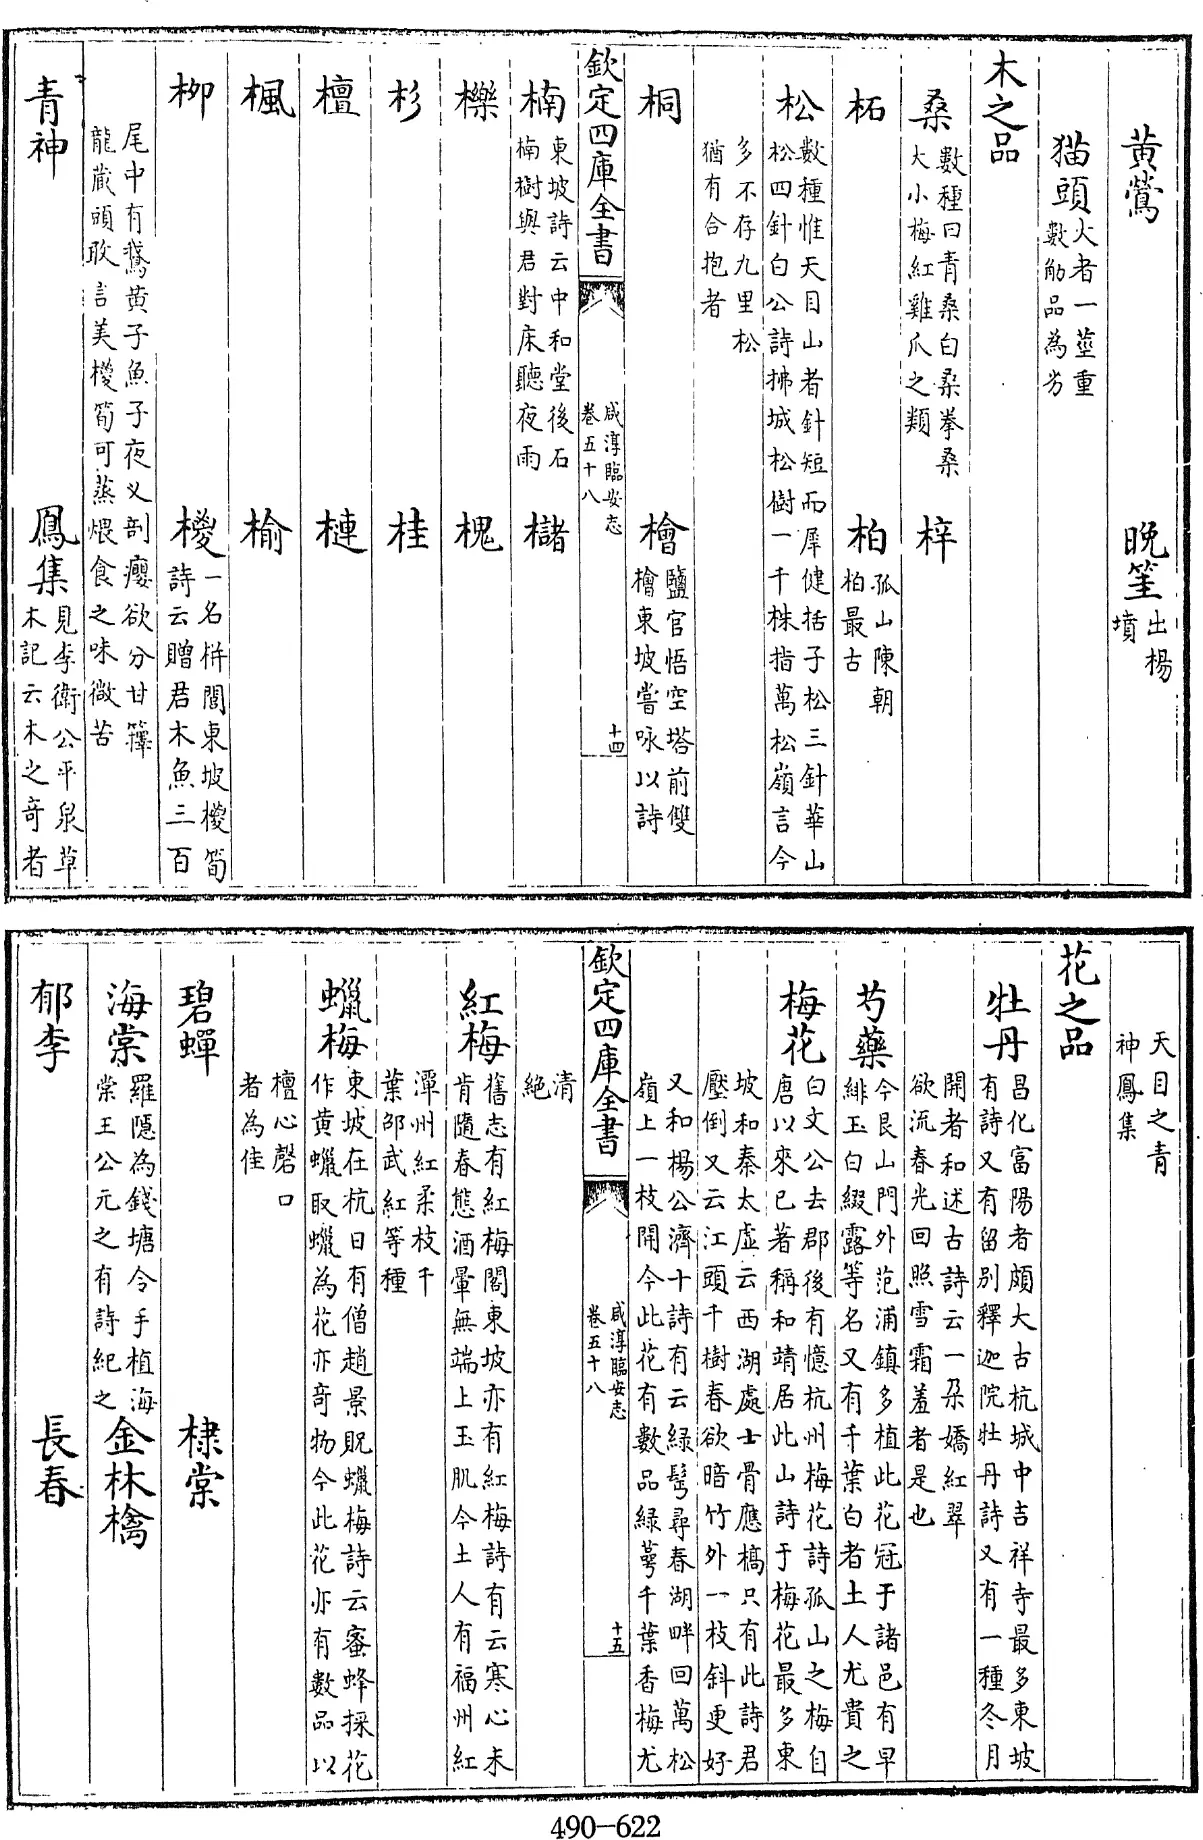 黄鶯　晚筀出楊墳
猫頭大者一莖重數觔品為劣
木之品
桑數種曰青桑白桑拳桑大小梅紅雞爪之類　梓
柘　柏孤山陳朝柏最古
松數種惟天目山者針短而犀健括子松三針華山松四針白公詩拂城松樹一千株指萬松嶺言今
多不存九里松猶有合抱者
桐　檜鹽官悟空塔前雙檜東坡嘗咏以詩
欽定四庫全書　咸淳臨安志卷五十八　十四
楠東坡詩云中和堂後石楠樹與君對床聽夜雨　櫧
櫟　槐
杉　桂
檀　槤
楓　榆
柳　椶一名栟閭東坡椶筍詩云贈君木魚三百
尾中有鵞黄子魚子夜乂剖癭欲分甘籜龍蔵頭敢言美椶筍可蒸煨食之味微苦
青神　鳳集見李衛公平泉草木記云木之奇者
天目之青神鳳集
花之品
牡丹昌化富陽者頗大古杭城中吉祥寺最多東坡有詩又有留別釋迦院牡丹詩又有一種冬月
開者和述古詩云一朶嬌紅翠欲流春光回照雪霜羞者是也
芍藥今艮山門外范浦鎮多植此花冠于諸邑有早緋玉白綴露等名又有千葉白者土人尤貴之
梅花白文公去郡後有憶杭州梅花詩孤山之梅自唐以來已著稱和靖居此山詩于梅花最多東
坡和秦太虚云西湖處士骨應槁只有此詩君壓倒又云江頭千樹春欲暗竹外一枝斜更好
又和楊公濟十詩有云綠髩尋春湖畔回萬松嶺上一枝開今此花有數品緑萼千葉香梅尤
欽定四庫全書　咸淳臨安志卷五十八　十五
清絶
紅梅舊志有紅梅閣東坡亦有紅梅詩有云寒心未肯隨春態酒暈無端上玉肌今土人有福州紅
潭州紅柔枝千葉邵武紅等種
蠟梅東坡在杭日有僧趙景貺蠟梅詩云蜜蜂採花作黄蠟取蠟為花亦奇物今此花亦有數品以
檀心磬口者為佳
碧蟬　棣棠
海棠羅隱為錢塘令手植海棠王公元之有詩紀之　金林檎
郁李　長春
490-622